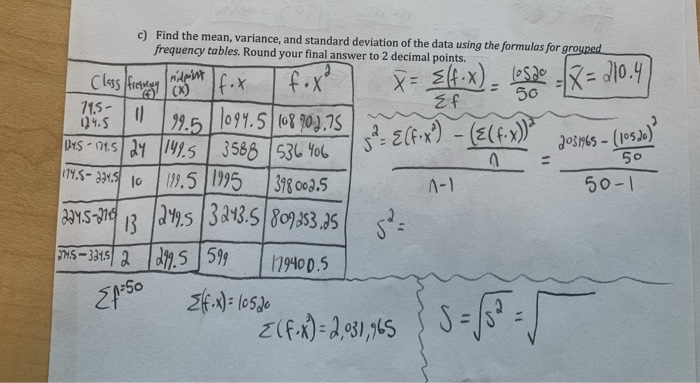 c) Find the mean, variance, and standard deviation of the data using the formulas for grouped
frequency tables. Round your final answer to 2 decimal points.
Class frequency (f) midpoint (x) f·x f·x²
74.5-124.5 11 99.5 1094.5 108902.75
124.5-174.5 24 149.5 3588 536406
174.5-224.5 10 199.5 1995 398002.5
224.5-274.5 13 249.5 3243.5 809253.25
274.5-324.5 2 299.5 599 179400.5
Σf=50
Σ(f·x)=10520
Σ(f·x²)=2,031,965
x̄ = Σ(f·x) / Σf = 10520 / 50 = x̄ = 210.4
s² = Σ(f·x²) - (Σ(f·x))² / n / n-1 = 2031965 - (10520)² / 50 / 50-1
s² =
s = √s² = √